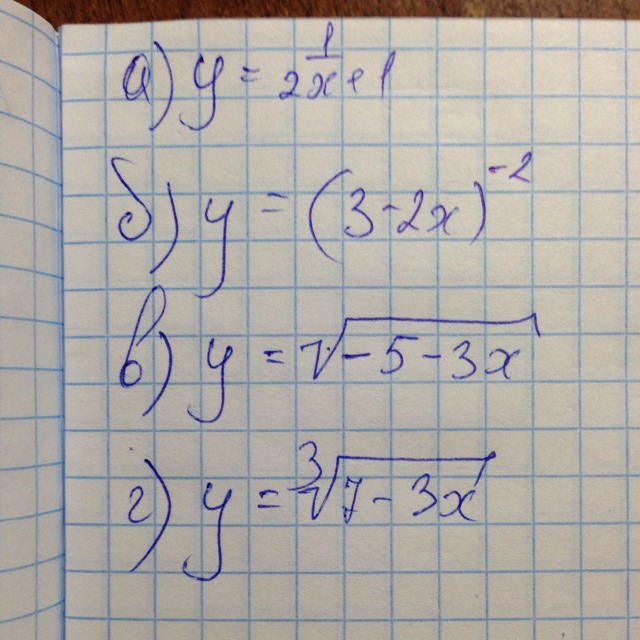 а) y = 1/(2x+1)
б) y = (3-2x)⁻²
в) y = √(-5-3x)
г) y = ³√(7-3x)